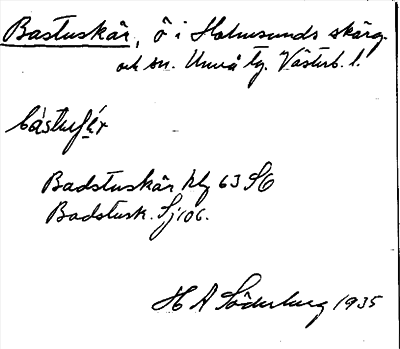 Bastuskär, ö i Holmsunds skärg.
och sn. Umeå tg. Västerb. l.
bástuʃɛ́r
Badstuskär blg 63 SO
Badstusk. Sj 106.
H A Söderberg 1935